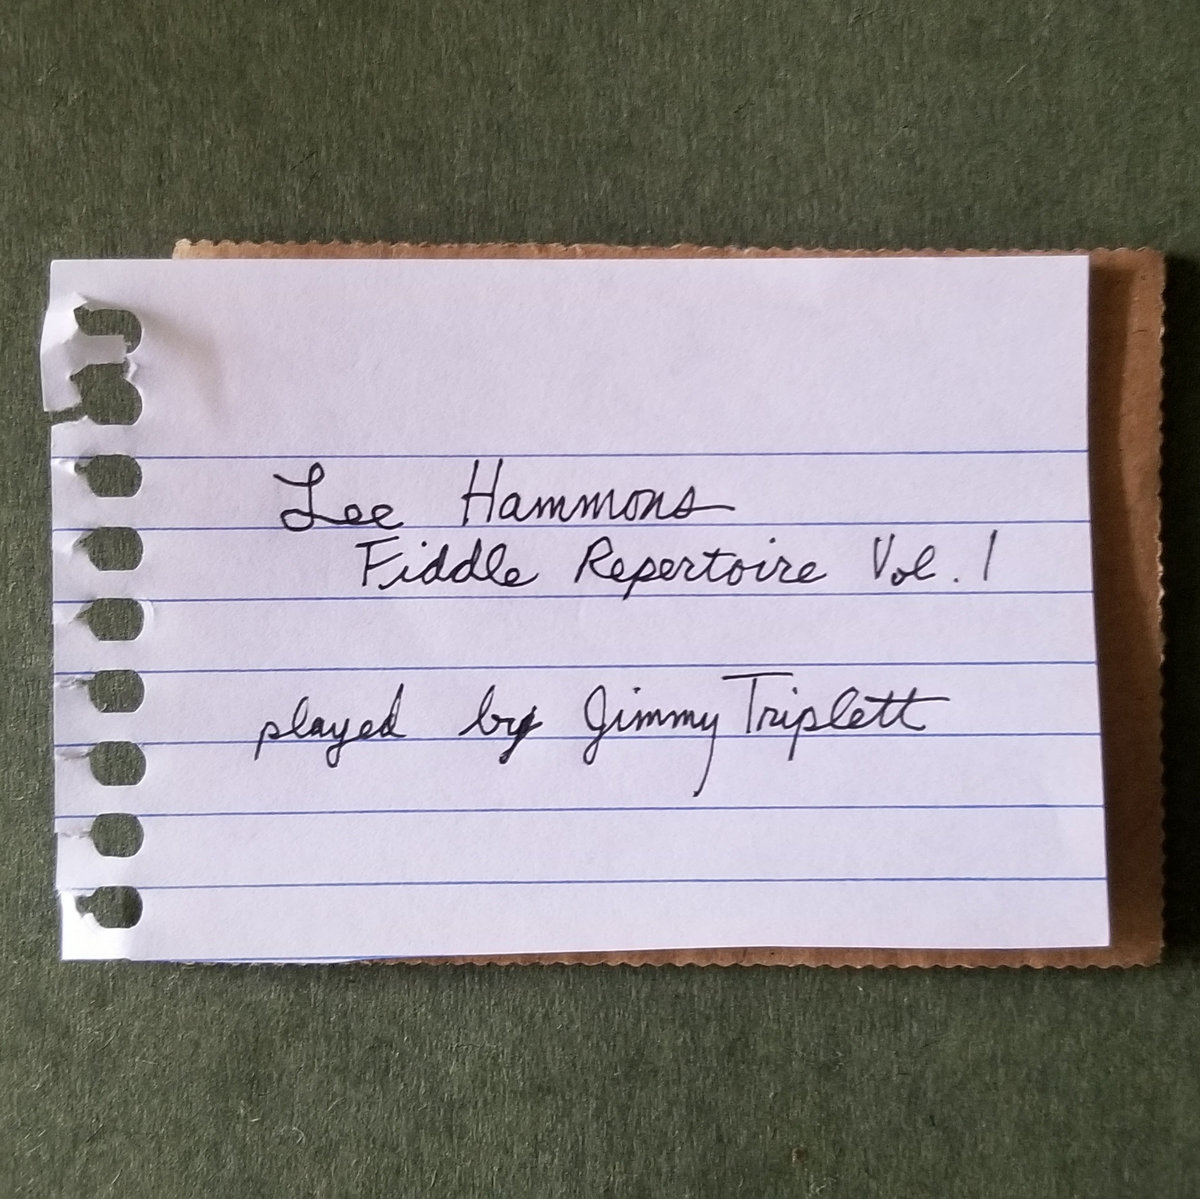 Lee Hammons
Fiddle Repertoire Vol. 1
played by Jimmy Triplett